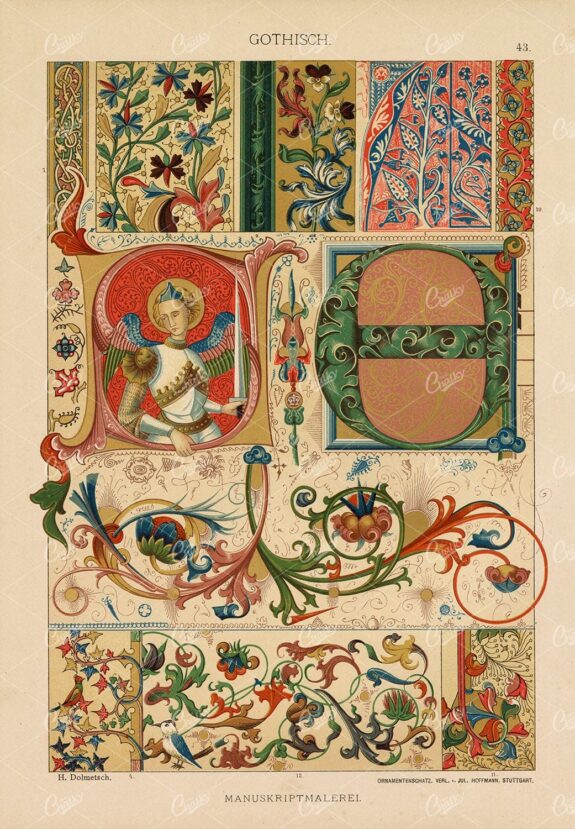 GOTHISCH.
43.
H. Dolmetsch.
12.
11.
ORNAMENTENSCHATZ. VERL. v. JUL. HOFFMANN, STUTTGART.
MANUSKRIPTMALEREI.